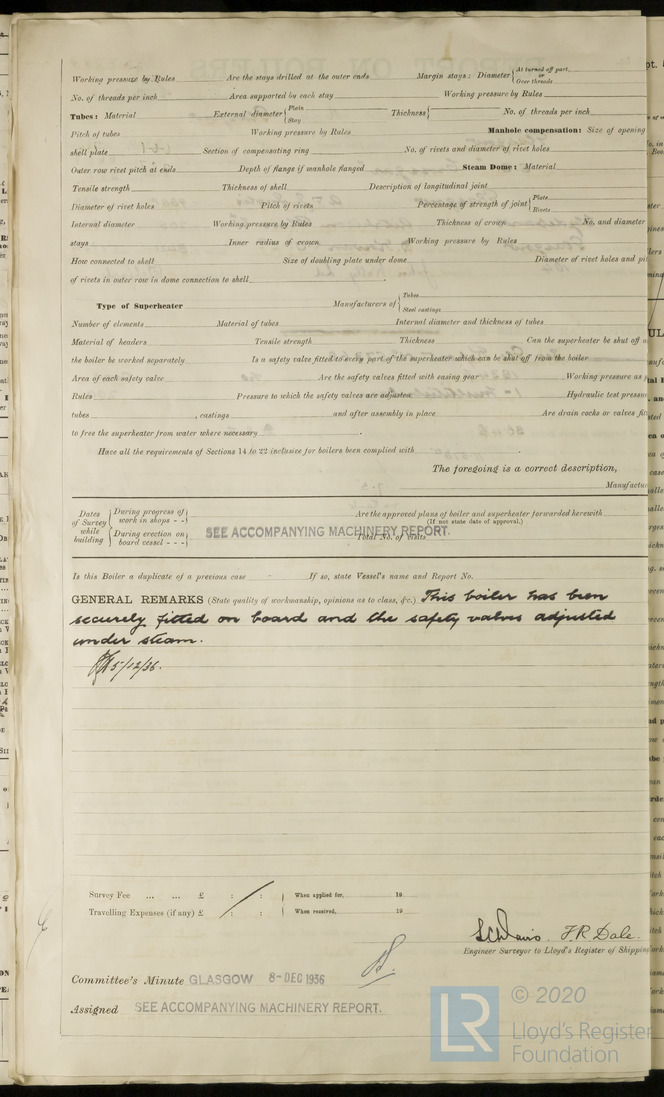 Working pressure by Rules Are the stays drilled at the outer ends Margin stays: Diameter { At turned off part, or Over threads
No. of threads per inch Area supported by each stay Working pressure by Rules
Tubes: Material External diameter { Plain Stay Thickness { No. of threads per inch
Pitch of tubes Working pressure by Rules Manhole compensation: Size of opening
shell plate Section of compensating ring No. of rivets and diameter of rivet holes
Outer row rivet pitch at ends Depth of flange if manhole flanged Steam Dome: Material
Tensile strength Thickness of shell Description of longitudinal joint
Diameter of rivet holes Pitch of rivets Percentage of strength of joint { Plate Rivets
Internal diameter Working pressure by Rules Thickness of crown No. and diameter
stays Inner radius of crown Working pressure by Rules
How connected to shell Size of doubling plate under dome Diameter of rivet holes and pi
of rivets in outer row in dome connection to shell
Type of Superheater Manufacturers of { Tubes Steel castings
Number of elements Material of tubes Internal diameter and thickness of tubes
Material of headers Tensile strength Thickness Can the superheater be shut off
the boiler be worked separately Is a safety valve fitted to every part of the superheater which can be shut off from the boiler
Area of each safety valve Are the safety valves fitted with easing gear Working pressure as
Rules Pressure to which the safety valves are adjusted Hydraulic test pressure
tubes , castings and after assembly in place Are drain cocks or valves
to free the superheater from water where necessary
Have all the requirements of Sections 14 to 22 inclusive for boilers been complied with
The foregoing is a correct description,
Manufactu
Dates of Survey while building { During progress of work in shops - - } Are the approved plans of boiler and superheater forwarded herewith
(If not state date of approval.)
{ During erection on board vessel - - } SEE ACCOMPANYING MACHINERY REPORT. Total No. of visits
Is this Boiler a duplicate of a previous case - If so, state Vessel's name and Report No.
GENERAL REMARKS (State quality of workmanship, opinions as to class, &c.) This boiler has been
securely fitted on board and the safety valves adjusted
under steam.
5/12/36.
Survey Fee ... ... £ : : } When applied for, 19
Travelling Expenses (if any) £ : : } When received, 19
F.R Dale.
Engineer Surveyor to Lloyd's Register of Shipping
Committee's Minute GLASGOW 8-DEC 1936
Assigned SEE ACCOMPANYING MACHINERY REPORT.
LR © 2020
Lloyd's Register
Foundation